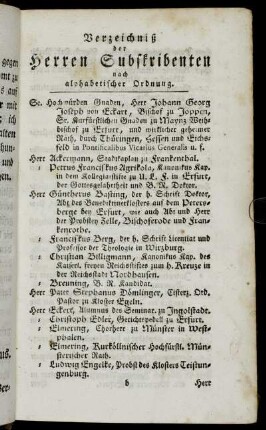 Verzeichniß
der
Herren Subskribenten
nach
alphabetischer Ordnung.
Se. Hochwürden Gnaden, Herr Johann Georg
Joseph von Eckart, Bischof zu Joppen,
Sr. Kurfürstlichen Gnaden zu Maynz Weih-
bischof zu Erfurt, und wirklicher geheimer
Rath, durch Thüringen, Hessen und Eichs-
feld in Pontificalibus Vicarius Generalis u. s.
Herr Ackermann, Stadtkaplan zu Frankenthal.
: Petrus Franciskus Agrikola, Kanonikus Kap.
in dem Kollegiatstifte zu U. L. F. in Erfurt,
der Gottesgelahrtheit und B. R. Doktor.
Herr Güntherus Basting, der h. Schrift Doktor,
Abt des Benediktinerklosters auf dem Peters-
berge bey Erfurt, wie auch Abt und Herr
der Probsteyen Zelle, Bischoferode und Fran-
kenrothe.
: Franciskus Berg, der h. Schrift Licentiat und
Professor der Theologie in Wirzburg.
: Christian Billigmann, Kanonikus Kap. des
Kaiserl. freyen Reichsstiftes zum h. Kreuze in
der Reichsstadt Nordhausen.
: Breunung, B. R. Kandidat.
Herr Pater Stephanus Dömlinger, Cisterz. Ord.
Pastor zu Kloster Egeln.
Herr Eckert, Alumnus des Seminar. zu Ingolstadt.
: Christoph Edler, Gerichtspedell zu Erfurt.
: Elmering, Chorherr zu Münster in West-
phalen.
: Elmering, Kurköllnischer Hochfürstl. Mün-
sterischer Rath.
: Ludwig Engelke, Probst des Klosters Teistun-
genburg.
b Herr